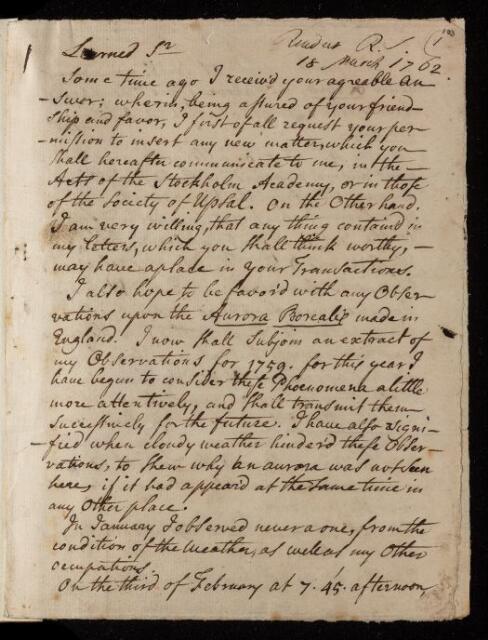 Learned Sr
Read at R.S.
18 March 1762.
Some time ago I receiv'd your agreable An-
-swer; wherin, being assured of your friend-
ship and favor, I first of all request your per-
-mission to insert any new matter, which you
shall hereafter communicate to me, in the
Acts of the Stockholm Academy, or in those
of the Society of Upsal. On the Other hand.
I am very willing, that any thing contain'd in
my letters, which you shall think worthy, -
may have a place in your Transactions.
I also hope to be favor'd with any Obser-
vations upon the Aurora Borealis made in
England. I now shall Subjoin an extract of
my Observations for 1759. for this year I
have begun to consider these Phoenomena a little
more attentively, and shall transmit them
successively for the future. I have also signi-
-fied when cloudy weather hinder'd these Obser-
vations, to shew why an aurora was not seen
here, if it had appear'd at the same time in
any Other place.
In January I observed never a one, from the
condition of the Weather, as well as my Other
occupations.
On the third of February at 7. 45. afternoon,